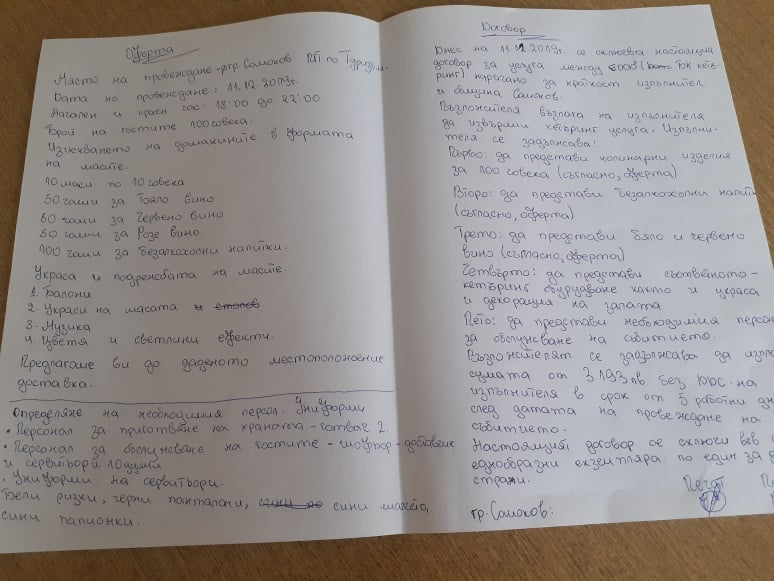 Оферта
Място на провеждане - гр. Самоков ПГ по Туризъм.
Дата но провеждане: 11.12 2019г.
Начален и краен час: 18:00 до 22:00.
Брой на гостите 100 човека.
Изискването на домакините в формата
на масите.
10 маси по 10 човека
50 гаши за Бяло вино
60 гаши за Червено вино
50 гаши за Розе вино.
100 гаши за безалкохолни напитки.
Украса и подредбата на масите.
1. Балони
2. Украси на масата
3. Музика
4. Цветя и светлини ефекти.
Предлагаме ви до даденото местоположение
доставка.
Определяне на необходимия персол. Униформи
• Персонал за приготвяне на храната - готвач 2.
• Персонал за обслужване на гостите - шофьор - доставчик
и сервитьори 10 души
• Униформи на сервитьори.
Бели ризки, черни понталони, сини
сини папионки.
Договор
Днес на 11.12 2019г. се сключва настоящия
договор за услуга между ЕООД (Ток кетъ-
ринг) наричано за краткост изпълнител
и община Самоков.
Възложителя възлага на изпълнителя
да извърши кетъринг услуга. Изпълни-
теля се задължава:
Първо: да представи колинарни изделия
за 100 човека (съгласно, оферта)
Второ: да представи безалкохолни напит
(съгласно, оферта)
Трето: да представи бяло и червено
вино (съгласно, оферта)
Четвърто: да представи съответното-
кетъринг обурудване както и украса
и декорация на залата
Пето: да представи необходимия персон
за обслужване на събитието.
Възложителят се задължава да изпл
сумата от 3 193 лв без ДДС на
изпълнителя в срок от 5 работни дн
след датата на провеждане на
събитието.
Настоящият договор се сключи във
еднообразни екземпляра по един за
страни.
Печат
гр. Самоков: